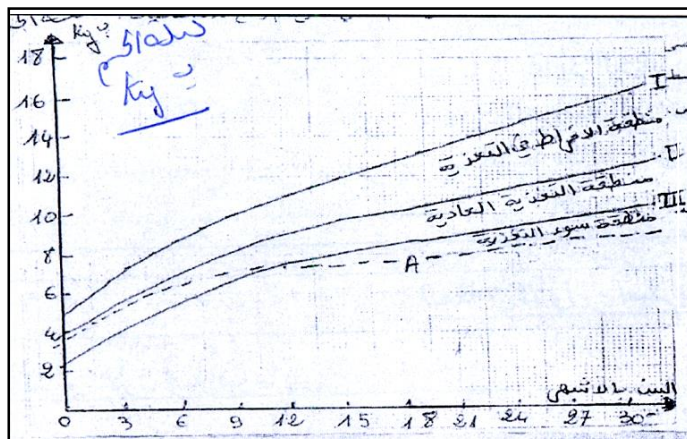 بـ Kg
الكتلة
بـ Kg
18
16
14
12
10
8
6
4
2
I
منطقة الافراط في التغذية
II
منطقة التغذية العادية
III
منطقة سوء التغذية
A
السن بالأشهر
0 3 6 9 12 15 18 21 24 27 30